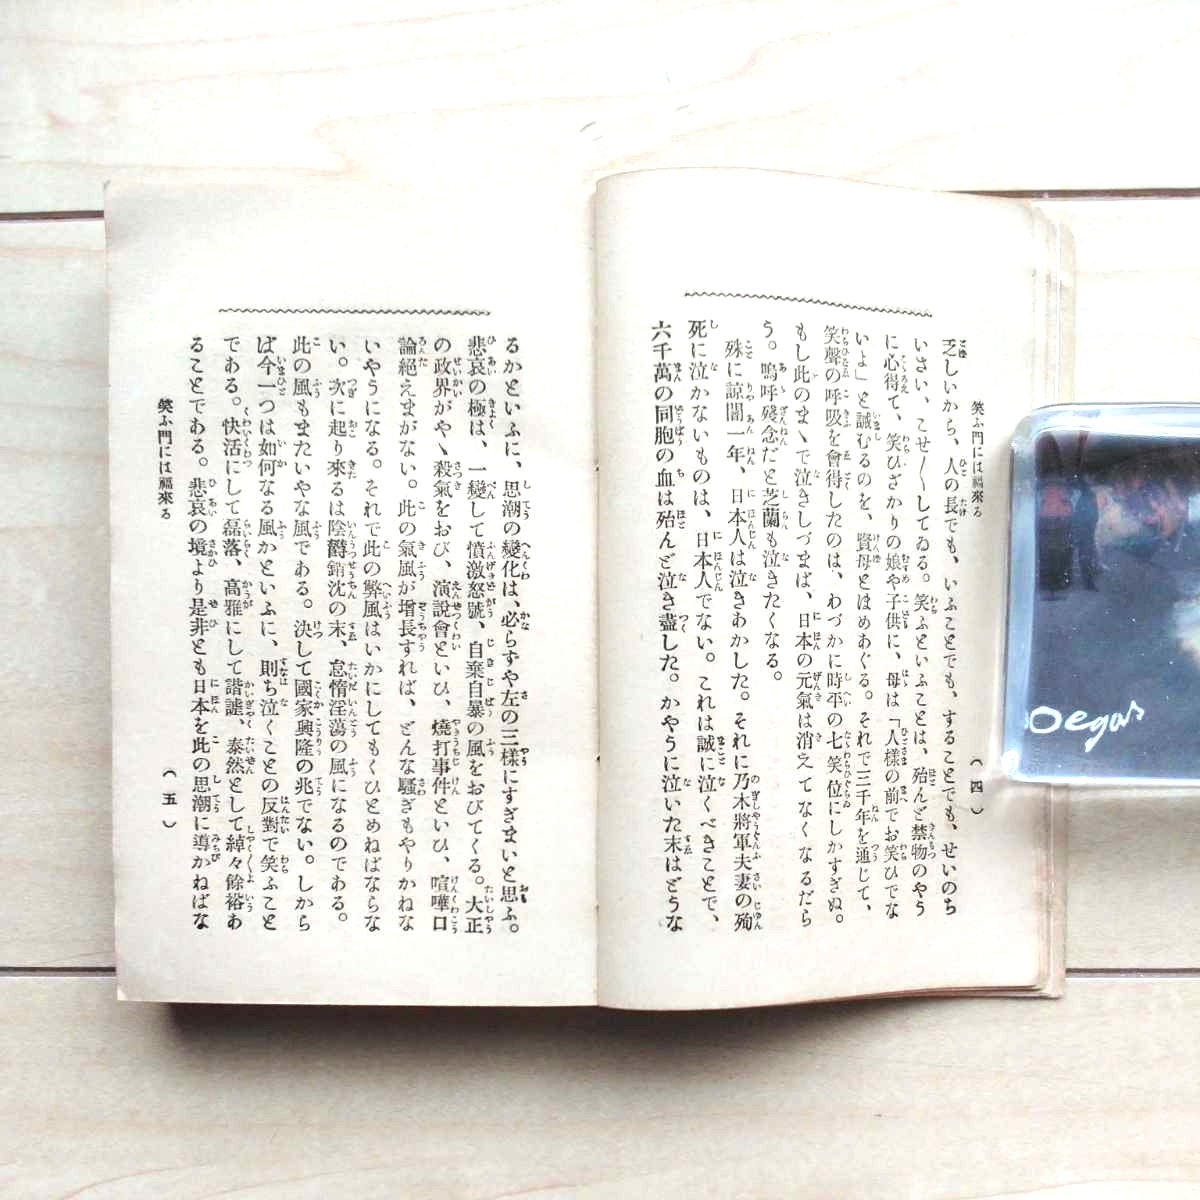 笑ふ門には福來る
（四）
乏しいから、人の長でも、いふことでも、することでも、せいのち
いさい、こせ〳〵してゐる。笑ふといふことは、殆んど禁物のやう
に心得て、笑ひざかりの娘や子供に、母は「人樣の前でお笑ひでな
いよ」と誡むるのを、賢母とはめあぐる。それで三千年を通じて、
笑聲の呼吸を會得したのは、わづかに時平の七笑位にしかすぎぬ。
もし此のまゝで泣きしづまば、日本の元氣は消えてなくなるだら
う。嗚呼殘念だと芝蘭も泣きたくなる。
殊に諒闇一年、日本人は泣きあかした。それに乃木將軍夫妻の殉
死に泣かないものは、日本人でない。これは誠に泣くべきことで、
六千萬の同胞の血は殆んど泣き盡した。かやうに泣いた末はどうな
るかといふに、思潮の變化は、必らずや左の三樣にすぎまいと思ふ。
悲哀の極は、一變して憤激怒號、自棄自暴の風をおびてくる。大正
の政界がやゝ殺氣をおび、演説會といひ、燒打事件といひ、喧嘩口
論絕えまがない。此の氣風が增長すれば、どんな騷ぎもやりかねな
いやうになる。それで此の弊風はいかにしてもくひとめねばならな
い。次に起り來るは陰欝銷沈の末、怠惰淫蕩の風になるのである。
此の風もまたいやな風である。決して國家興隆の兆でない。しから
ば今一つは如何なる風かといふに、則ち泣くことの反對で笑ふこと
である。快活にして磊落、高雅にして諧謔、泰然として綽々餘裕あ
ることである。悲哀の境より是非とも日本を此の思潮に導かねばな
笑ふ門には福來る
（五）
Degas